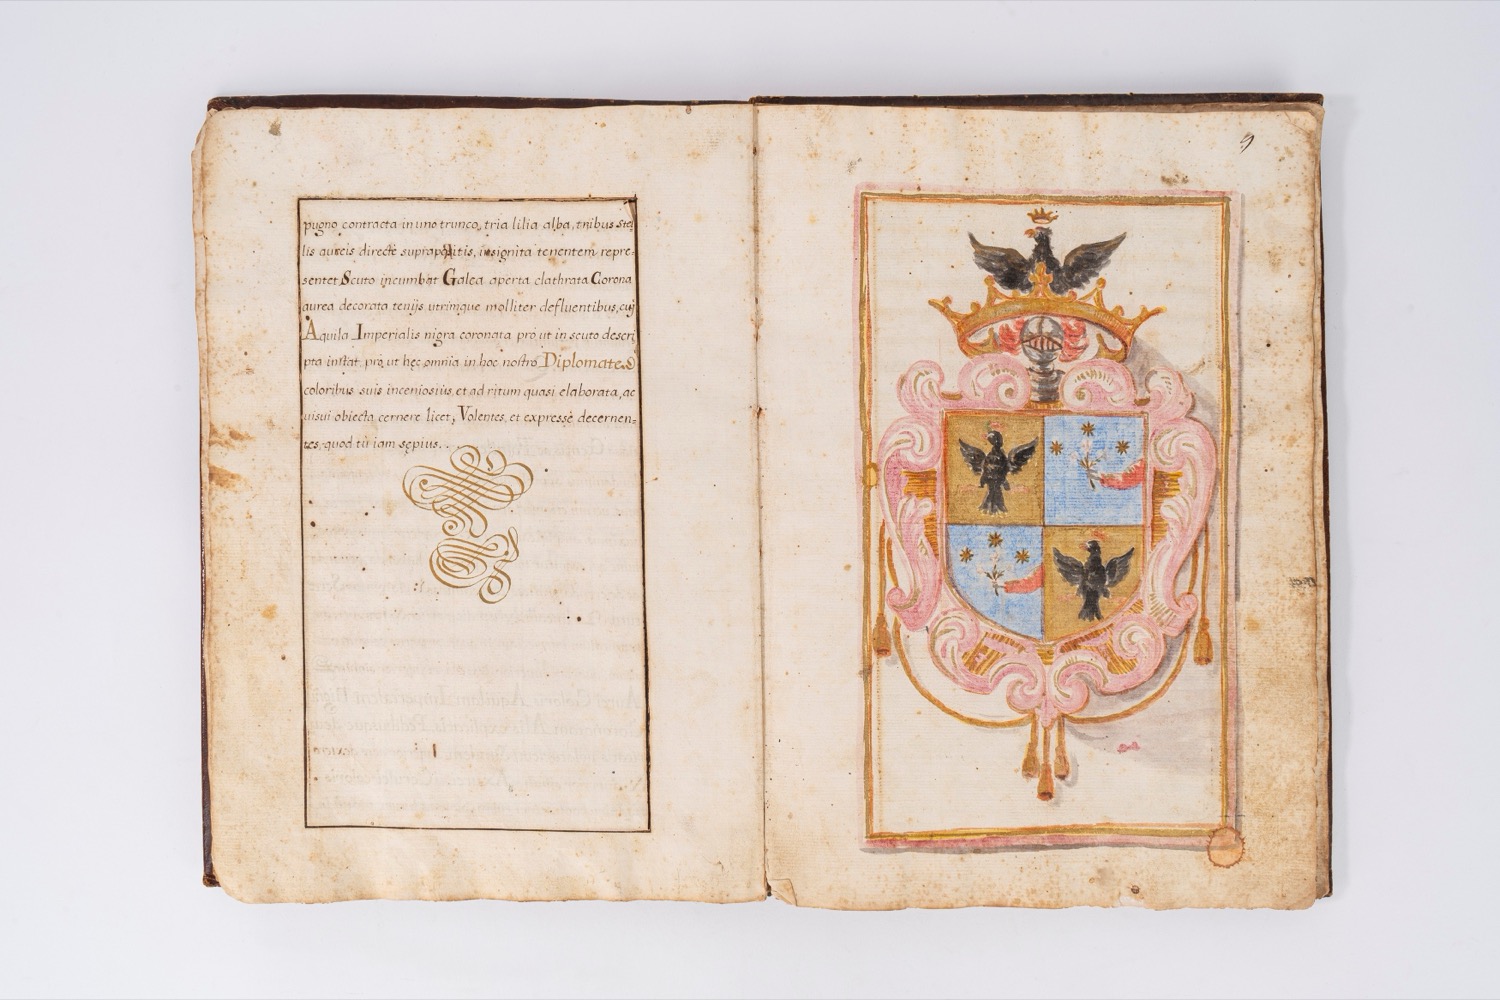 pugno contracta in uno trunco, tria lilia alba, tribus stel
lis aureis directe suprapositis, insignita tenentem repre:
sentet Scuto incumbat Galea aperta clathrata Corona
aurea decorata tenijs utrimque molliter defluentibus, cuj
Aquila Imperialis nigra coronata pro ut in scuto descri
pta instat, pro ut hęc omnia in hoc nostro Diplomate
coloribus suis inceniosiùs, et ad ritum quasi elaborata, ac
uisui obiecta cernere licet, Volentes, et expressè decernen=
tes, quod tu iam sepius..
9